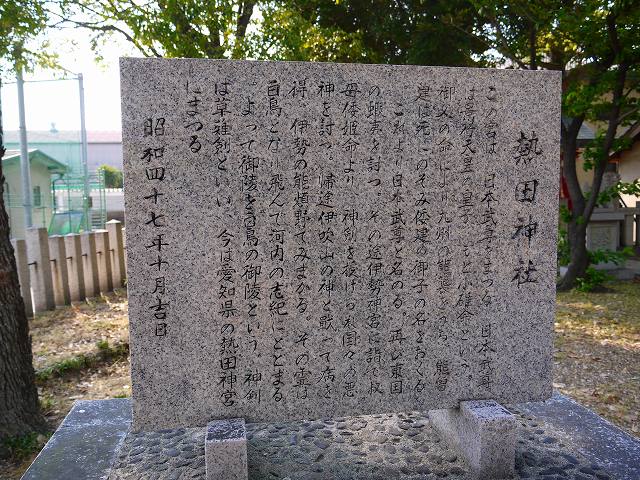 熱田神社
この宮は、日本武尊をまつる。日本武尊
は景行天皇の皇子、もと小碓命という。
御父の命により九州の熊襲をうち、熊曽
建は死にのぞみ倭建の御子の名をおくる
これより日本武尊と名のる。再び東国
の蝦夷を討つ。その途伊勢神宮に詣で叔
母倭姫命より、神剣を授けられ国々の悪
神を討つ。帰途伊吹山の神と戦って病を
得、伊勢の能煩野でみまかる。その霊は
白鳥となり飛んで河内の志紀にとどまる
よって御陵を白鳥の御陵という。神剣
は草薙剣といい、今は愛知県の熱田神宮
にまつる
昭和四十七年十月吉日